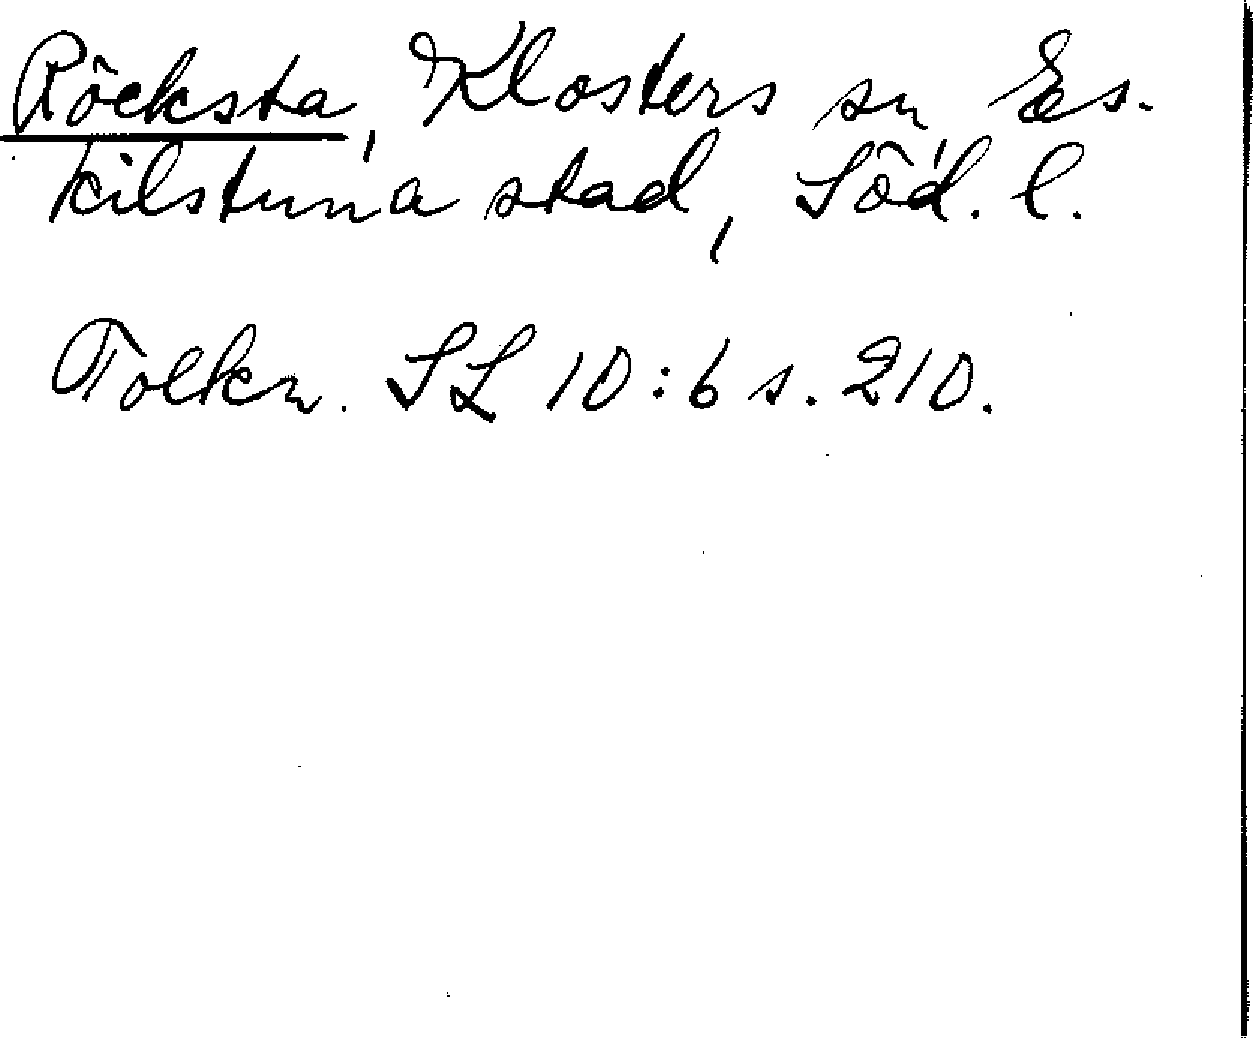 Röcksta, Klosters sn, Es-
kilstuna stad, Söd. l.
Tolkn. SL 10:6 s. 210.